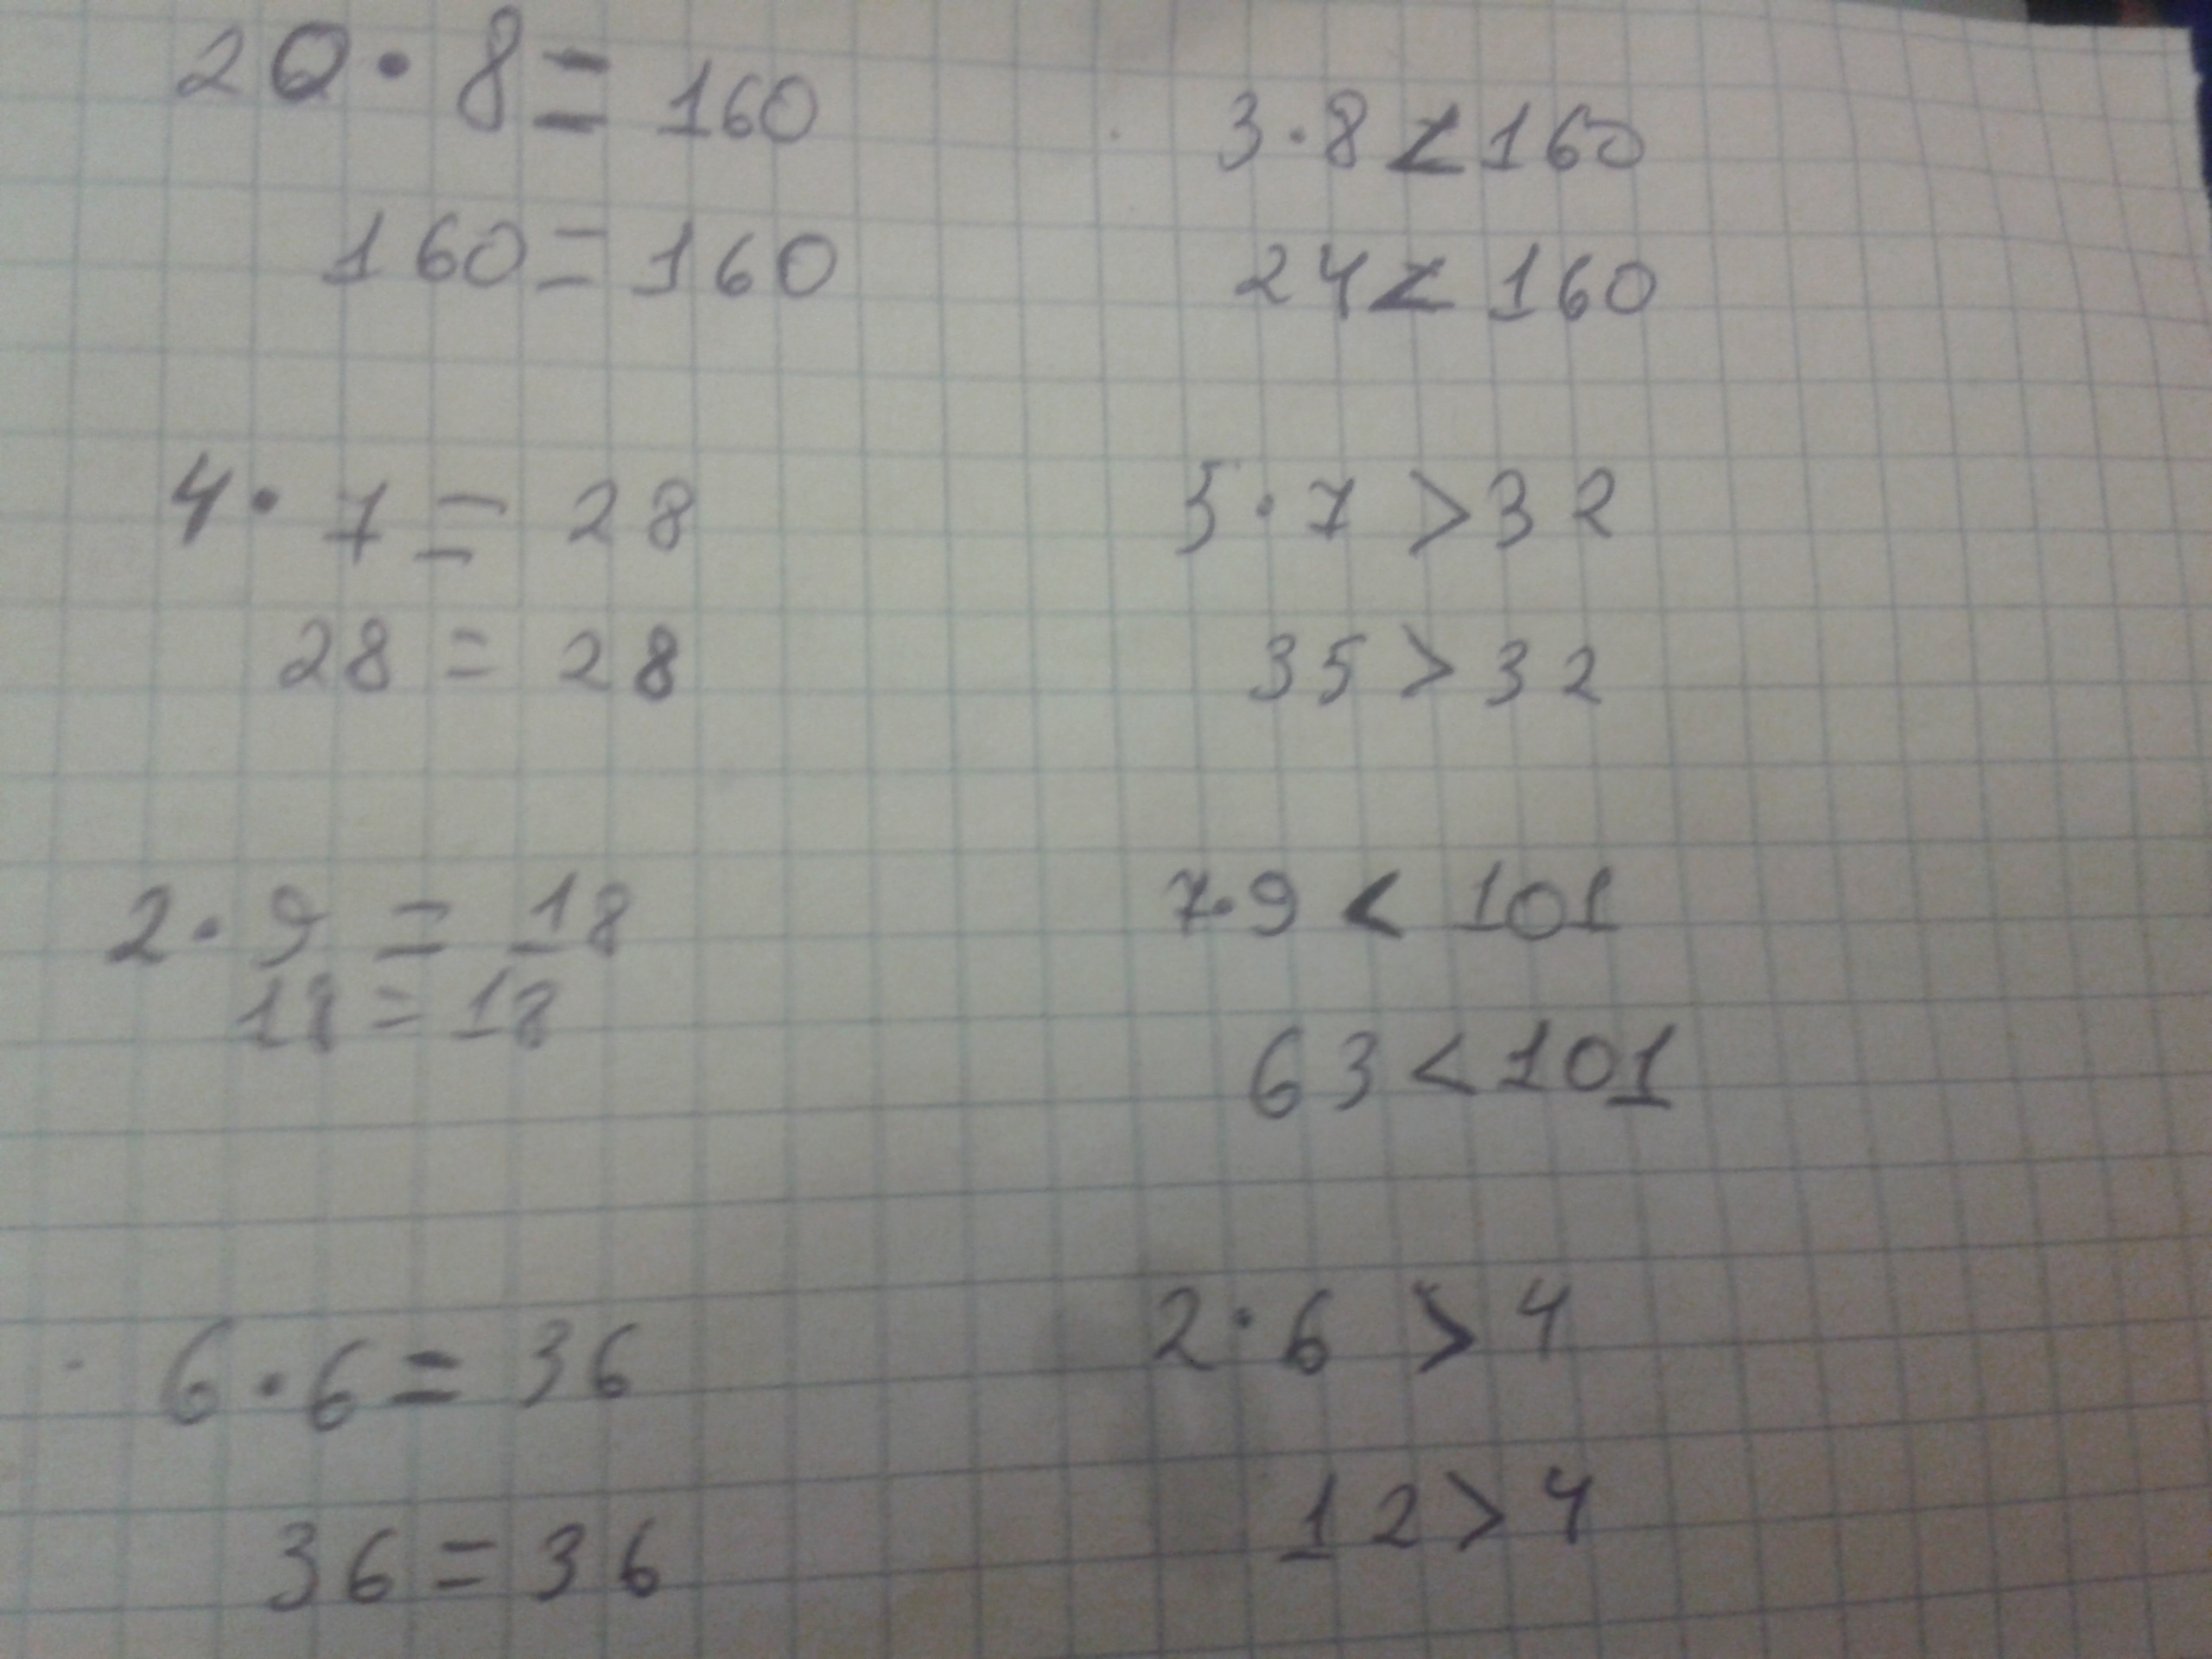 20 · 8 = 160
160 = 160
4 · 7 = 28
28 = 28
2 · 9 = 18
18 = 18
6 · 6 = 36
36 = 36
3 · 8 < 160
24 < 160
5 · 7 > 32
35 > 32
7 · 9 < 101
63 < 101
2 · 6 > 4
12 > 4